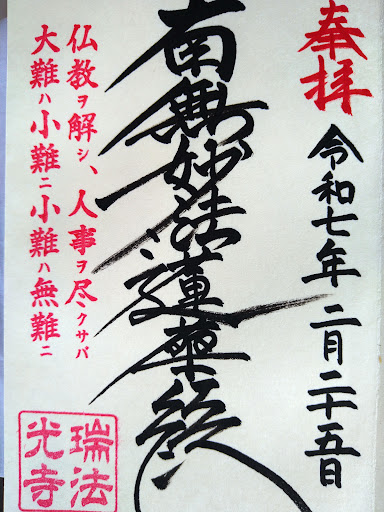 奉拝
令和七年 二月二十五日
南無妙法蓮華経
仏教ヲ解シ、人事ヲ尽クサバ
大難ハ小難ニ小難ハ無難ニ
瑞法
光寺